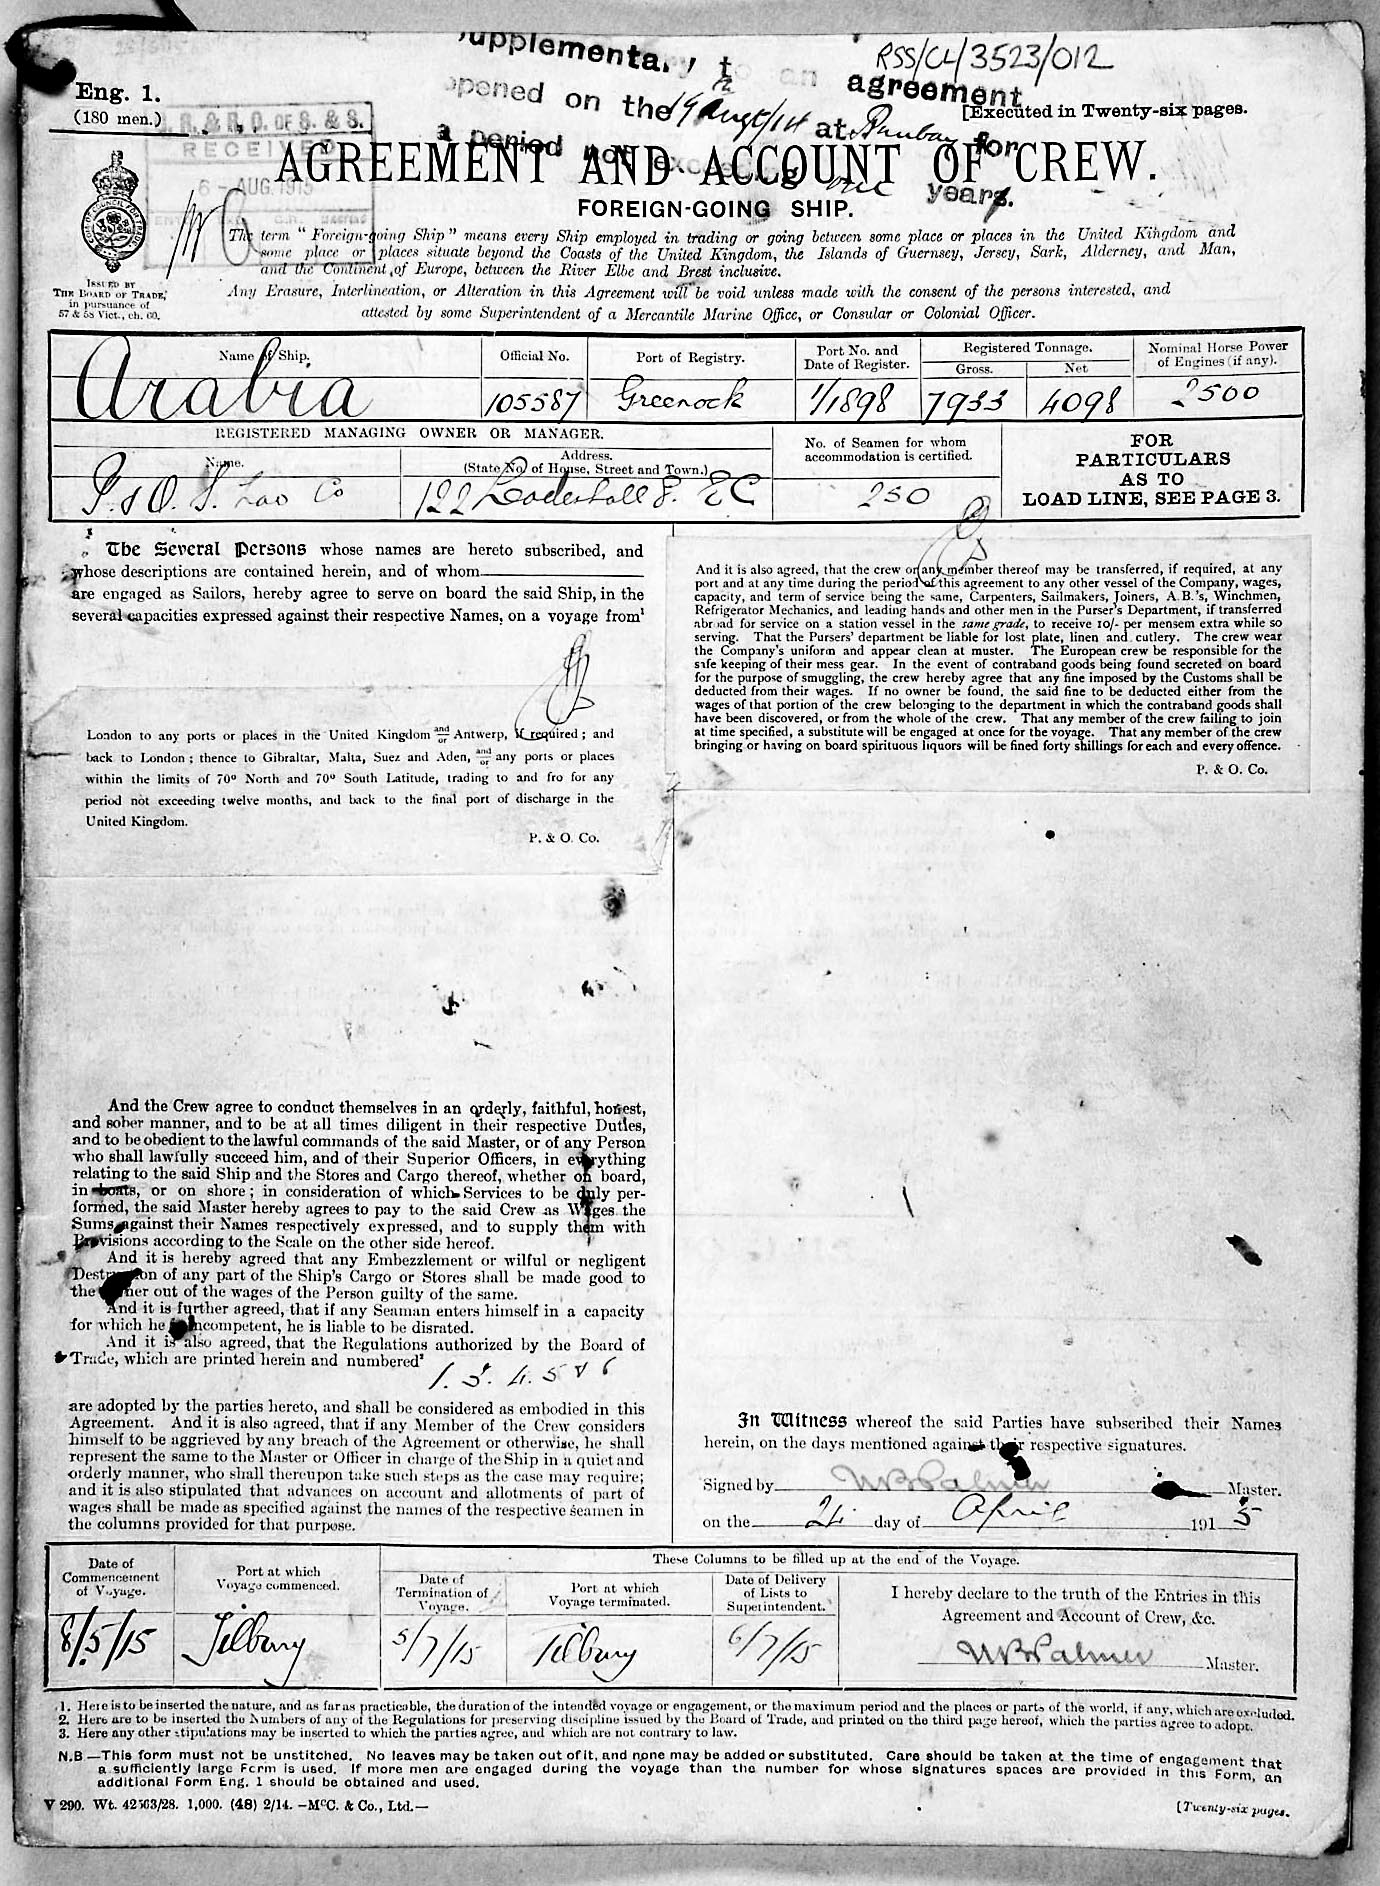 Supplementary to an agreement
RSS/CL/3523/012
opened on the 19th Augt/14 at Bombay for
a period not exceeding one years.
Eng. 1.
(180 men.)
[Executed in Twenty-six pages.
R. & R. O. OF S. & S.
RECEIVED
6 - AUG. 1915
AGREEMENT AND ACCOUNT OF CREW.
FOREIGN-GOING SHIP.
The term "Foreign-going Ship" means every Ship employed in trading or going between some place or places in the United Kingdom and
some place or places situate beyond the Coasts of the United Kingdom, the Islands of Guernsey, Jersey, Sark, Alderney, and Man,
and the Continent of Europe, between the River Elbe and Brest inclusive.
Any Erasure, Interlineation, or Alteration in this Agreement will be void unless made with the consent of the persons interested, and
attested by some Superintendent of a Mercantile Marine Office, or Consular or Colonial Officer.
ISSUED BY
THE BOARD OF TRADE,
in pursuance of
57 & 58 Vict., ch. 60.
Name of Ship.
Official No.
Port of Registry.
Port No. and
Date of Register.
Registered Tonnage.
Gross.
Net
Nominal Horse Power
of Engines (if any).
Arabia
105587
Greenock
1/1898
7933
4098
2500
REGISTERED MANAGING OWNER OR MANAGER.
Name.
Address.
(State No. of House, Street and Town.)
No. of Seamen for whom
accommodation is certified.
FOR
PARTICULARS
AS TO
LOAD LINE, SEE PAGE 3.
P. & O. S. Nav Co
122 Leadenhall S. EC
250
The Several Persons whose names are hereto subscribed, and
whose descriptions are contained herein, and of whom
are engaged as Sailors, hereby agree to serve on board the said Ship, in the
several capacities expressed against their respective Names, on a voyage from¹
London to any ports or places in the United Kingdom and/or Antwerp, if required; and
back to London; thence to Gibraltar, Malta, Suez and Aden, and/or any ports or places
within the limits of 70° North and 70° South Latitude, trading to and fro for any
period not exceeding twelve months, and back to the final port of discharge in the
United Kingdom.
P. & O. Co.
And the Crew agree to conduct themselves in an orderly, faithful, honest,
and sober manner, and to be at all times diligent in their respective Duties,
and to be obedient to the lawful commands of the said Master, or of any Person
who shall lawfully succeed him, and of their Superior Officers, in everything
relating to the said Ship and the Stores and Cargo thereof, whether on board,
in boats, or on shore; in consideration of which Services to be duly per-
formed, the said Master hereby agrees to pay to the said Crew as Wages the
Sums against their Names respectively expressed, and to supply them with
Provisions according to the Scale on the other side hereof.
And it is hereby agreed that any Embezzlement or wilful or negligent
Destruction of any part of the Ship's Cargo or Stores shall be made good to
the Owner out of the wages of the Person guilty of the same.
And it is further agreed, that if any Seaman enters himself in a capacity
for which he is incompetent, he is liable to be disrated.
And it is also agreed, that the Regulations authorized by the Board of
Trade, which are printed herein and numbered²
1. 3. 4. 5 & 6
are adopted by the parties hereto, and shall be considered as embodied in this
Agreement. And it is also agreed, that if any Member of the Crew considers
himself to be aggrieved by any breach of the Agreement or otherwise, he shall
represent the same to the Master or Officer in charge of the Ship in a quiet and
orderly manner, who shall thereupon take such steps as the case may require;
and it is also stipulated that advances on account and allotments of part of
wages shall be made as specified against the names of the respective seamen in
the columns provided for that purpose.
And it is also agreed, that the crew or any member thereof may be transferred, if required, at any
port and at any time during the period of this agreement to any other vessel of the Company, wages,
capacity, and term of service being the same, Carpenters, Sailmakers, Joiners, A.B.'s, Winchmen,
Refrigerator Mechanics, and leading hands and other men in the Purser's Department, if transferred
abroad for service on a station vessel in the same grade, to receive 10/- per mensem extra while so
serving. That the Pursers' department be liable for lost plate, linen and cutlery. The crew wear
the Company's uniform and appear clean at muster. The European crew be responsible for the
safe keeping of their mess gear. In the event of contraband goods being found secreted on board
for the purpose of smuggling, the crew hereby agree that any fine imposed by the Customs shall be
deducted from their wages. If no owner be found, the said fine to be deducted either from the
wages of that portion of the crew belonging to the department in which the contraband goods shall
have been discovered, or from the whole of the crew. That any member of the crew failing to join
at time specified, a substitute will be engaged at once for the voyage. That any member of the crew
bringing or having on board spirituous liquors will be fined forty shillings for each and every offence.
P. & O. Co.
In Witness whereof the said Parties have subscribed their Names
herein, on the days mentioned against their respective signatures.
Signed by W B Palmer Master.
on the 24 day of April 1915
Date of
Commencement
of Voyage.
Port at which
Voyage commenced.
These Columns to be filled up at the end of the Voyage.
Date of
Termination of
Voyage.
Port at which
Voyage terminated.
Date of Delivery
of Lists to
Superintendent.
I hereby declare to the truth of the Entries in this
Agreement and Account of Crew, &c.
8/5/15
Tilbury
5/7/15
Tilbury
6/7/15
W B Palmer Master.
1. Here is to be inserted the nature, and as far as practicable, the duration of the intended voyage or engagement, or the maximum period and the places or parts of the world, if any, which are excluded.
2. Here are to be inserted the Numbers of any of the Regulations for preserving discipline issued by the Board of Trade, and printed on the third page hereof, which the parties agree to adopt.
3. Here any other stipulations may be inserted to which the parties agree, and which are not contrary to law.
N.B—This form must not be unstitched. No leaves may be taken out of it, and none may be added or substituted. Care should be taken at the time of engagement that
a sufficiently large Form is used. If more men are engaged during the voyage than the number for whose signatures spaces are provided in this Form, an
additional Form Eng. 1 should be obtained and used.
V 290. Wt. 42563/28. 1,000. (48) 2/14. —McC. & Co., Ltd.—
[Twenty-six pages.